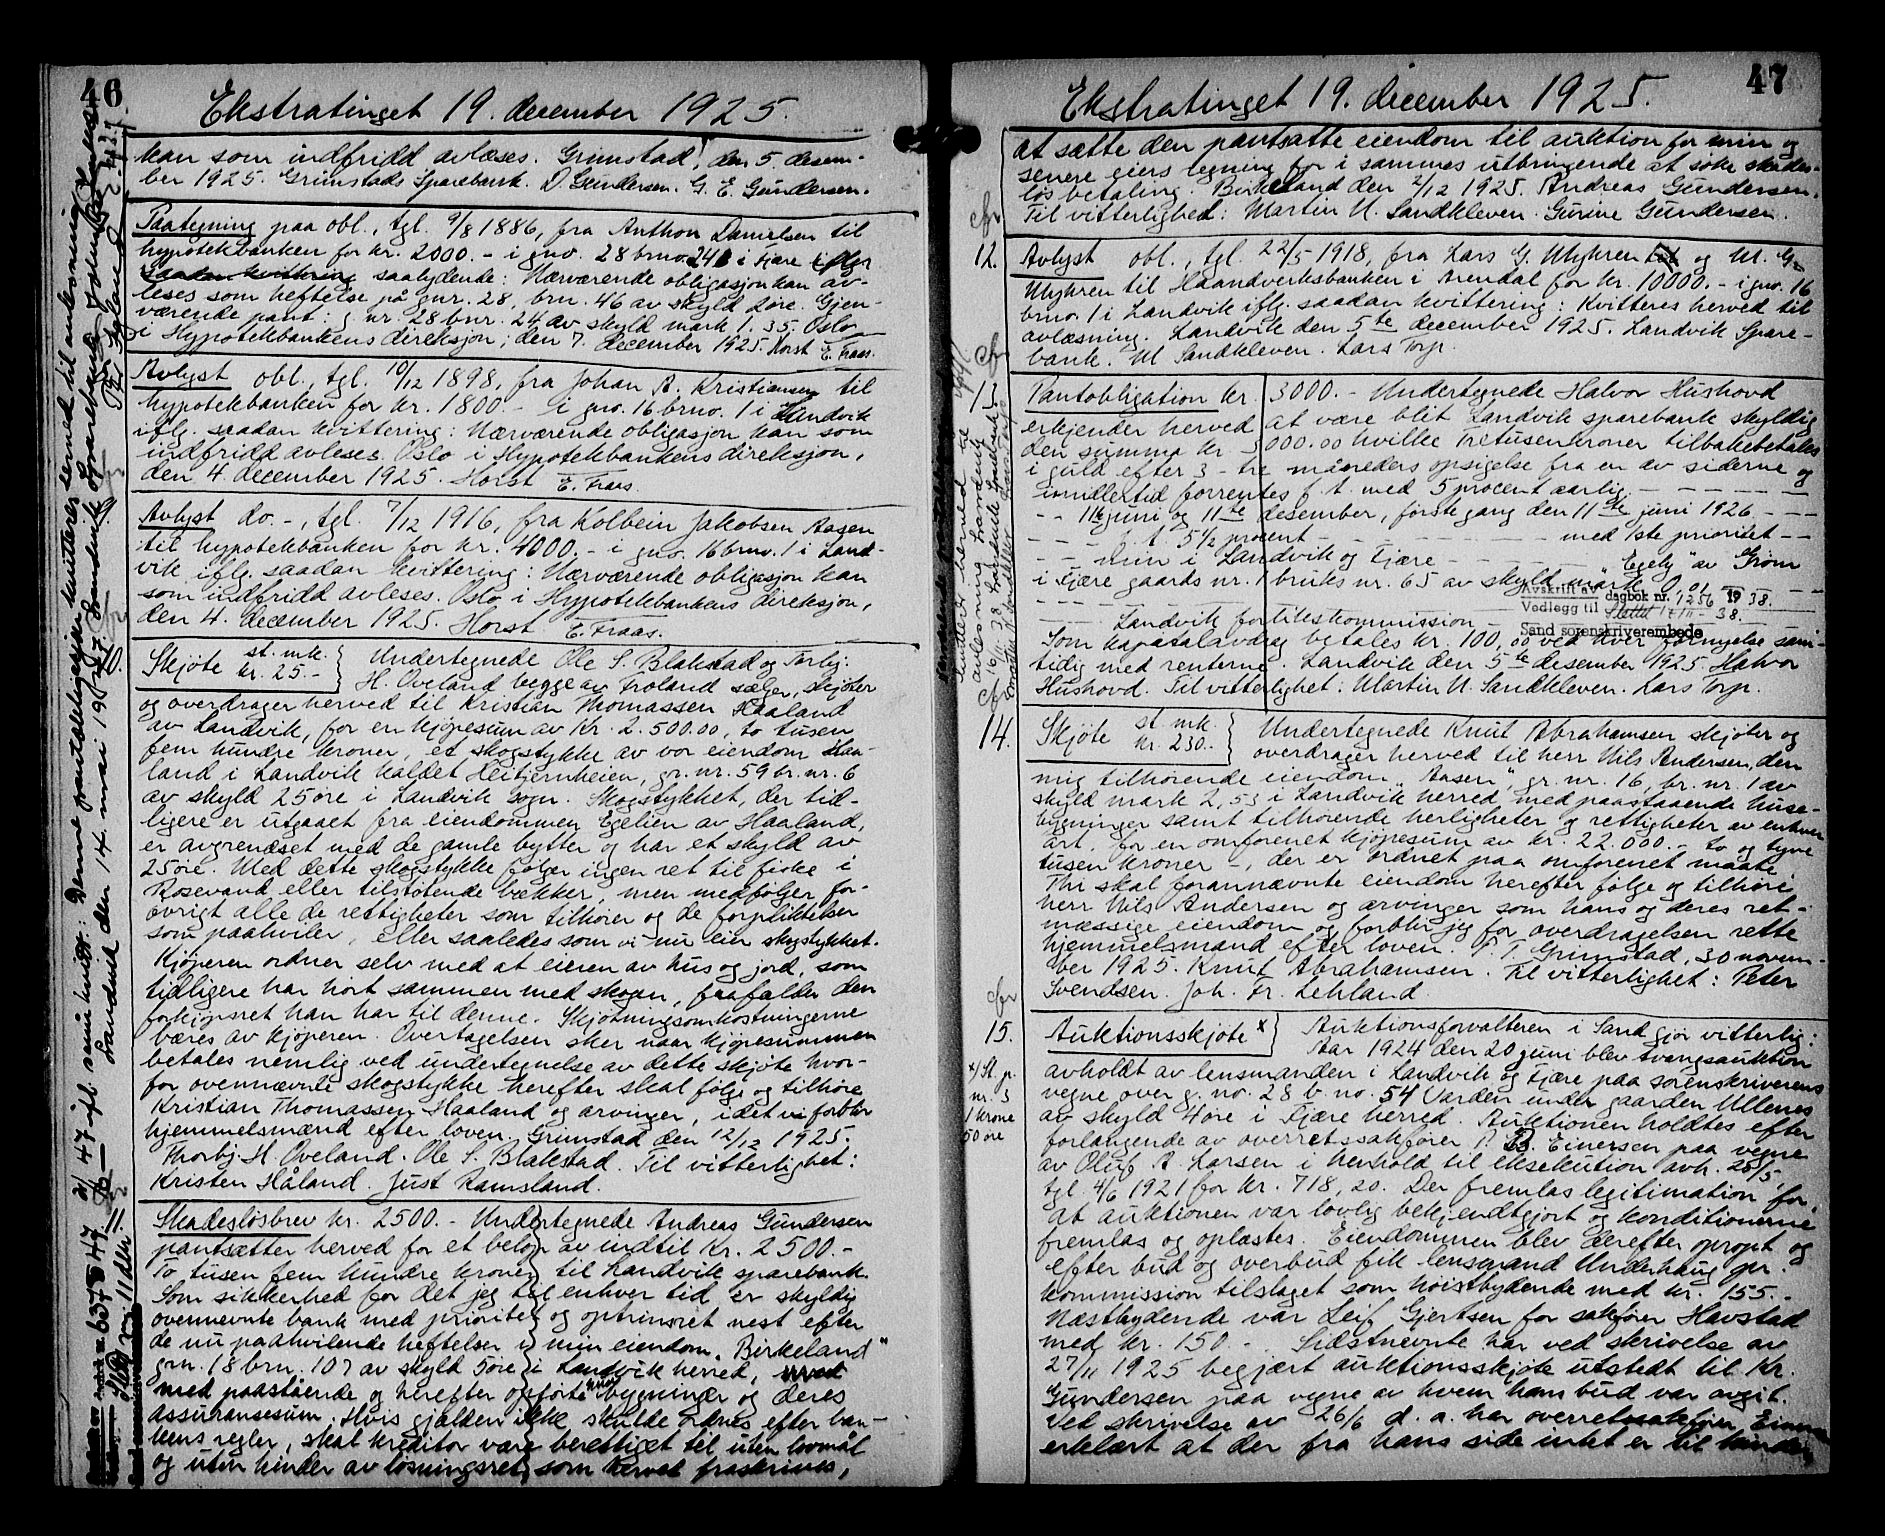 46
Ekstratinget 19. december 1925.
kan som indfridd avlæses. Grimstad, den 5 desem-
ber 1925. Grimstads Sparebank. D. Gundersen. G. E. Gundersen.
Paategning paa obl., tgl. 9/8 1886, fra Anthon Danielsen til
hypotekbanken for kr. 2000.- i gno. 28 brno. 24 i Fjære iflg
saadan kvittering saalydende: Nærværende obligasjon kan av-
leses som heftelse på gnr. 28, brn. 46 av skyld øre. Gjen-
værende pant: g.nr. 28 bnr. 24 av skyld mark 1.35. Oslo
i Hypotekbankens direksjon, den 7. december 1925. Horst E. Fraas.
Avlyst obl., tgl. 10/12 1898, fra Johan A. Kristiansen til
hypotekbanken for kr. 1800.- i gno. 16 brno. 1 i Landvik
iflg. saadan kvittering: Nærværende obligasjon kan som
indfridd avleses. Oslo i Hypotekbankens direksjon,
den 4. december 1925. Horst E. Fraas.
Avlyst do.-, tgl. 7/12 1916, fra Kolbein Jakobsen Aasen
til hypotekbanken for kr. 4000.- i gno. 16 brno. 1 i Land-
vik iflg. saadan kvittering: Nærværende obligasjon kan
som indfridd avleses. Oslo i Hypotekbankens direksjon,
den 4. december 1925. Horst E. Fraas.
10. Skjøte st. mk. kr. 25.- Undertegnede Ole S. Blakstad og Torbj:
H. Oveland begge av Froland sælger, skjøter
og overdrager herved til Kristian Thomassen Haaland
av Landvik, for en kjøpesum av Kr. 2.500.00, to tusen
fem hundre kroner, et skogstykke av vor eiendom Haa-
land i Landvik kaldet Heitjernheien, gr. nr. 59 br. nr. 6
av skyld 25 øre i Landvik sogn. Skogstykket, der tid-
ligere er utgaaet fra eiendommen Egelien av Haaland,
er avgrændset med de gamle bytter og har et skyld av
25 øre. Med dette skogstykke følger ingen ret til fiske i
Rosevand eller tilstøtende bækker, men medfølger for-
øvrigt alle de rettigheter som tilhører og de forpliktelser
som paahviler, eller saaledes som vi nu eier skogstykket.
Kjøperen ordner selv med at eieren av hus og jord, som
tidligere har hørt sammen med skogen, frafalder den
forkjøpsret han har til denne. Skjøtningsomkostningerne
bæres av kjøperen. Overtagelsen sker naar kjøpesummen
betales nemlig ved undertegnelse av dette skjøte hvor-
for ovennævnte skogstykke herefter skal følge og tilhøre
Kristian Thomassen Haaland og arvinger, idet vi forblir
hjemmelsmænd efter loven. Grimstad den 12/12 1925.
Thorbj. H. Oveland. Ole S. Blakstad. Til vitterlighet:
Kristen Håland. Just Ramsland.
11. Skadesløsbrev kr. 2500.- Undertegnede Andreas Gundersen
pantsætter herved for et beløp av indtil Kr. 2500.-
To tusen fem hundre kroner til Landvik sparebank.
Som sikkerhed for det jeg til enhver tid er skyldig
ovennevnte bank med prioritet og optrinsret nest efter
de nu paahvilende heftelser i min eiendom "Birkeland"
grn. 18 brn. 107 av skyld 5 øre i Landvik herred,
med paastående og herefter opførte bygninger og deres
assuransesum. Hvis gjælden ikke skulde ordnes efter ban-
kens regler, skal kreditor være berettiget til uten lovmål
og uten hinder av løsningsret, som herved fraskrives,
47
Ekstratinget 19. december 1925.
at sætte den pantsatte eiendom til auktion for min og
senere eiers regning for i sammes utbringende at søke skades-
løs betaling. Birkeland den 2/12 1925. Andreas Gundersen.
Til vitterlighed: Martin N. Sandkleven. Gurine Gundersen.
12. Avlyst obl., tgl. 22/5 1918, fra Lars G. Myhren og M. G.
Myhren til Haandverksbanken i Arendal for kr. 10000.- i gno. 16
brno. 1 i Landvik iflg. saadan kvittering: Kvitteres herved til
avlæsning. Landvik den 5te december 1925. Landvik Spare-
bank. M Sandkleven. Lars Torp.
13. Pantobligation kr. 3000.- Undertegnede Halvor Hushovd
erkjender herved at være blit Landvik sparebank skyldig
den summa kr. 3000.00 hvilke Tretusen kroner tilbakebetales
i guld efter 3 - tre måneders opsigelse fra en av siderne og
imidlertid forrentes f. t. med 5 procent aarlig.
11te juni og 11te desember, første gang den 11te juni 1926
f. t 5 1/2 procent - med 1ste prioritet
min i Landvik og Fjære - "Egely" av Grøm
i Fjære gaards nr. 1 bruks nr. 65 av skyld mark 0.01
Avskrift av dagbok nr. 1256 1938.
Vedlegg til Slettet 17/11 38.
Sand sorenskriverembede
Landvik forlikskommission
Som kapitalavdrag betales kr. 100,00 ved hver fornyelse sam-
tidig med renterne. Landvik den 5te desember 1925. Halvor
Hushovd. Til vitterlighet: Martin N. Sandkleven. Lars Torp.
14. Skjøte st. mk. kr. 230.- Undertegnede Knut Abrahamsen skjøter og
overdrager herved til herr Nils Andersen, den
mig tilhørende eiendom "Aasen", gr. nr. 16, br. nr. 1 av
skyld mark 2,53 i Landvik herred, med paastaaende huse-
bygninger samt tilhørende herligheter og rettigheter av enhver
art, for en omforenet kjøpesum av kr. 22.000.- to og tyve
tusen kroner -, der er ordnet paa omforenet maate.
Thi skal forannævnte eiendom herefter følge og tilhøre
herr Nils Andersen og arvinger som hans og deres ret-
mæssige eiendom og forblir jeg for overdragelsen rette
hjemmelsmand efter loven. P. T. Grimstad, 30 novem-
ber 1925. Knut Abrahamsen. Til vitterlighet: Peter
Svendsen. Joh. Fr. Lehland.
15. Auktionsskjøte x Auktionsforvalteren i Sand gjør vitterlig:
x) St. p. nr. 3 1 krone 50 øre
Aar 1924 den 20 juni blev tvangsauktion
avholdt av lensmanden i Landvik og Fjære paa sorenskriverens
vegne over g. no. 28 b. no. 54 Varden under gaarden Ullenes
av skyld 4 øre i Fjære herred. Auktionen holdtes efter
forlangende av overretssakfører P. B. Einersen paa vegne
av Oluf A. Larsen i henhold til eksekution avh. 28/5,
tgl 4/6 1921 for kr. 718,20. Der fremlas legitimation for,
at auktionen var lovlig bekjendtgjort og konditionerne
fremlas og oplæstes. Eiendommen blev derefter opropt og
efter bud og overbud fik lensmand Underhaug pr.
kommission tilslaget som høistbydende med kr. 155.-
Næstbydende var Leif Gjertsen for sakfører Havstad
med kr. 150.- Sidstnevnte har ved skrivelse av
27/11 1925 begjært auktionsskjøte utstedt til Kr.
Gundersen paa vegne av hvem hans bud var avgit.
Ved skrivelse av 26/6 d. a. har overretssakfører Einersen
erklært at der fra hans side intet er til hinder,